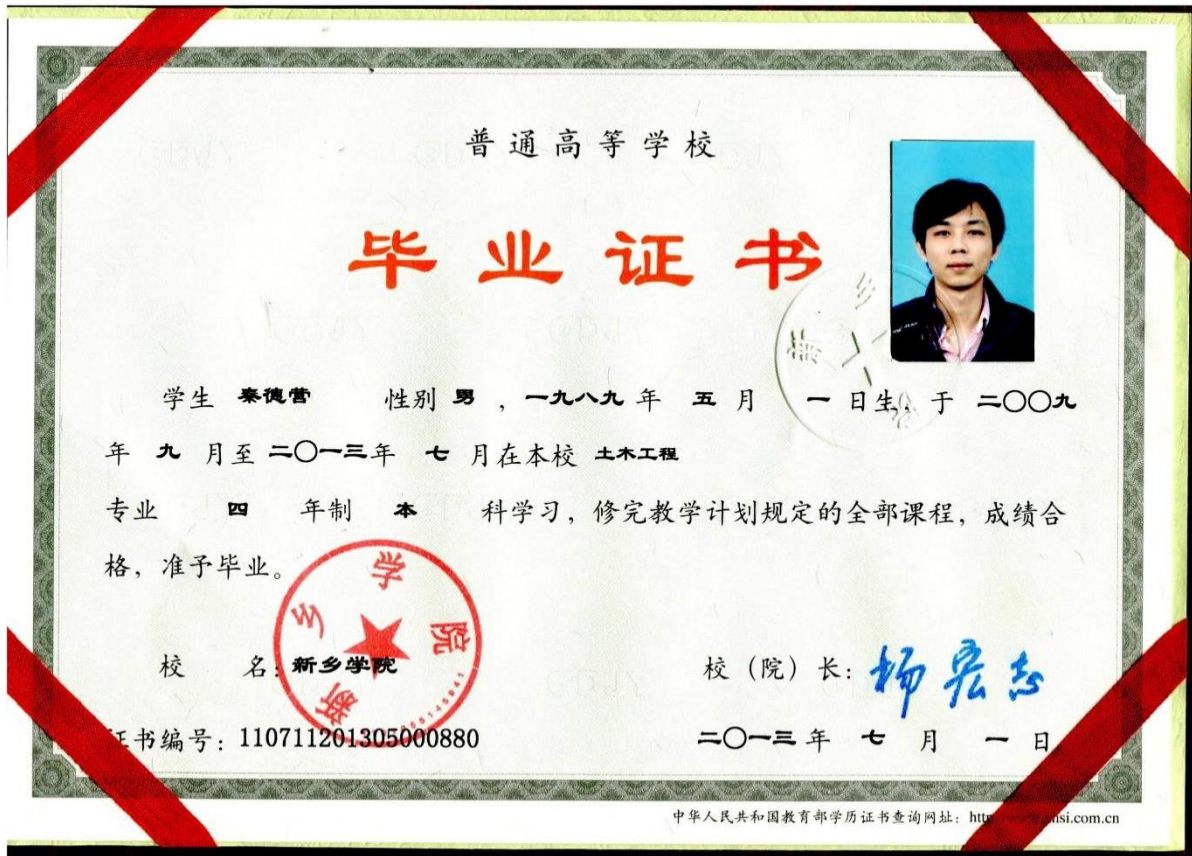 普通高等学校
毕业证书
学生 秦德营 性别 男 ，一九八九 年 五 月 一 日生，于 二〇〇九
年 九 月至 二〇一三年 七 月在本校 土木工程
专业 四 年制 本 科学习，修完教学计划规定的全部课程，成绩合
格，准予毕业。
新乡学院
校 名：新乡学院
校（院）长：杨宏志
证书编号：110711201305000880
二〇一三 年 七 月 一 日
中华人民共和国教育部学历证书查询网址：http://www.chsi.com.cn